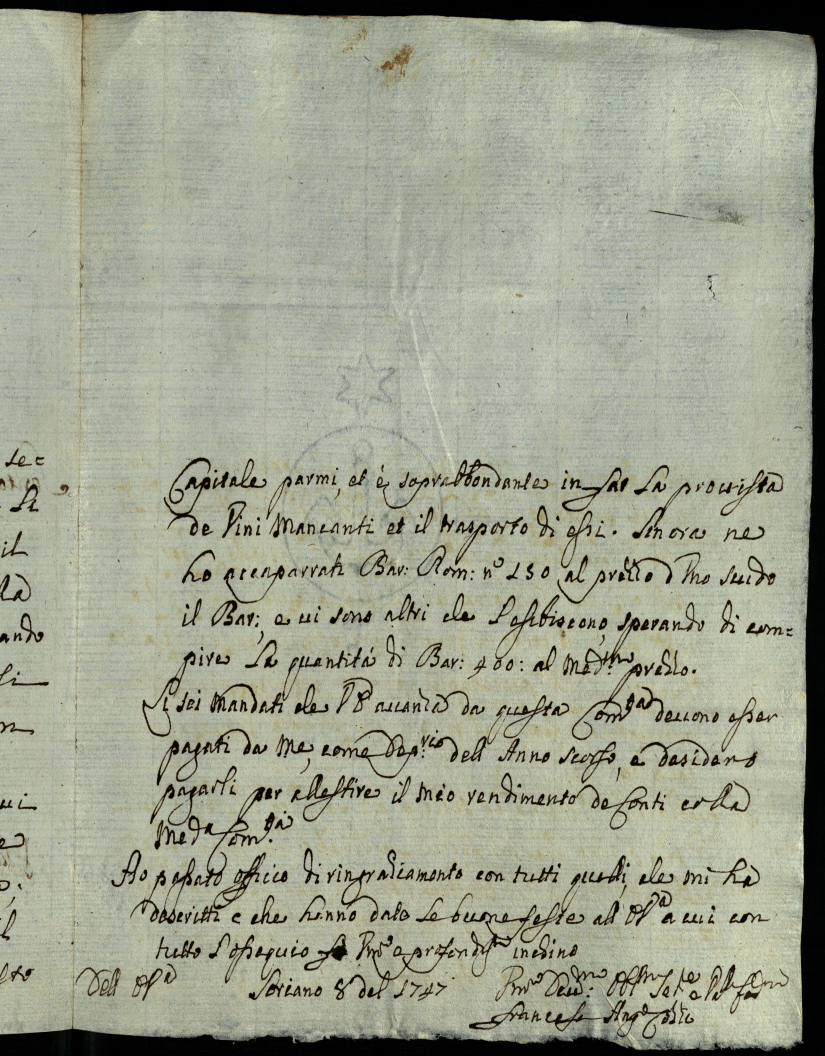 se=
Li
il
lla
ando
si
m
ui
e
l
lto
Capitale parmi, et è soprabbondante in far La provista
de Vini Mancanti et il trasporto di essi. Sinora ne
ho accaparrati Bar: Rom: n.º 150 al prezzo d'Uno scudo
il Bar:, e vi sono altri che l'esibiscono, sperando di com=
pire La quantitá di Bar: 400: al Med.mo prezzo.
Li sei Mandati che avanza da questa Com.tà devono esser
pagati da Me, come Dep.rio dell'Anno scorso, e desidero
pagarli per allestire il mio rendimento de Conti colla
Med.a Com.tà
Ho passato officio di ringraziamento con tutti quelli, che mi ha
descritti e che hanno dato Le buone feste all' a cui con
tutto l'ossequio e profond.e inchino
Dell' Soriano 8 del 1747
Francesco Ang.o